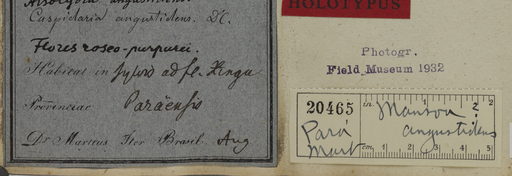 angustidens.
Caspidaria angustidens. DC.
Flores roseo-purpurei.
Habitat in sylvis ad fl. Xingu
Provinciae Paraënsis
Dr Martius Iter Brasil. Aug
HOLOTYPUS
Photogr.
Field Museum 1932
20465
in. 1 2
Mansoa ?
angustidens
Pará
Mart
cm. 1 2 3 4 5